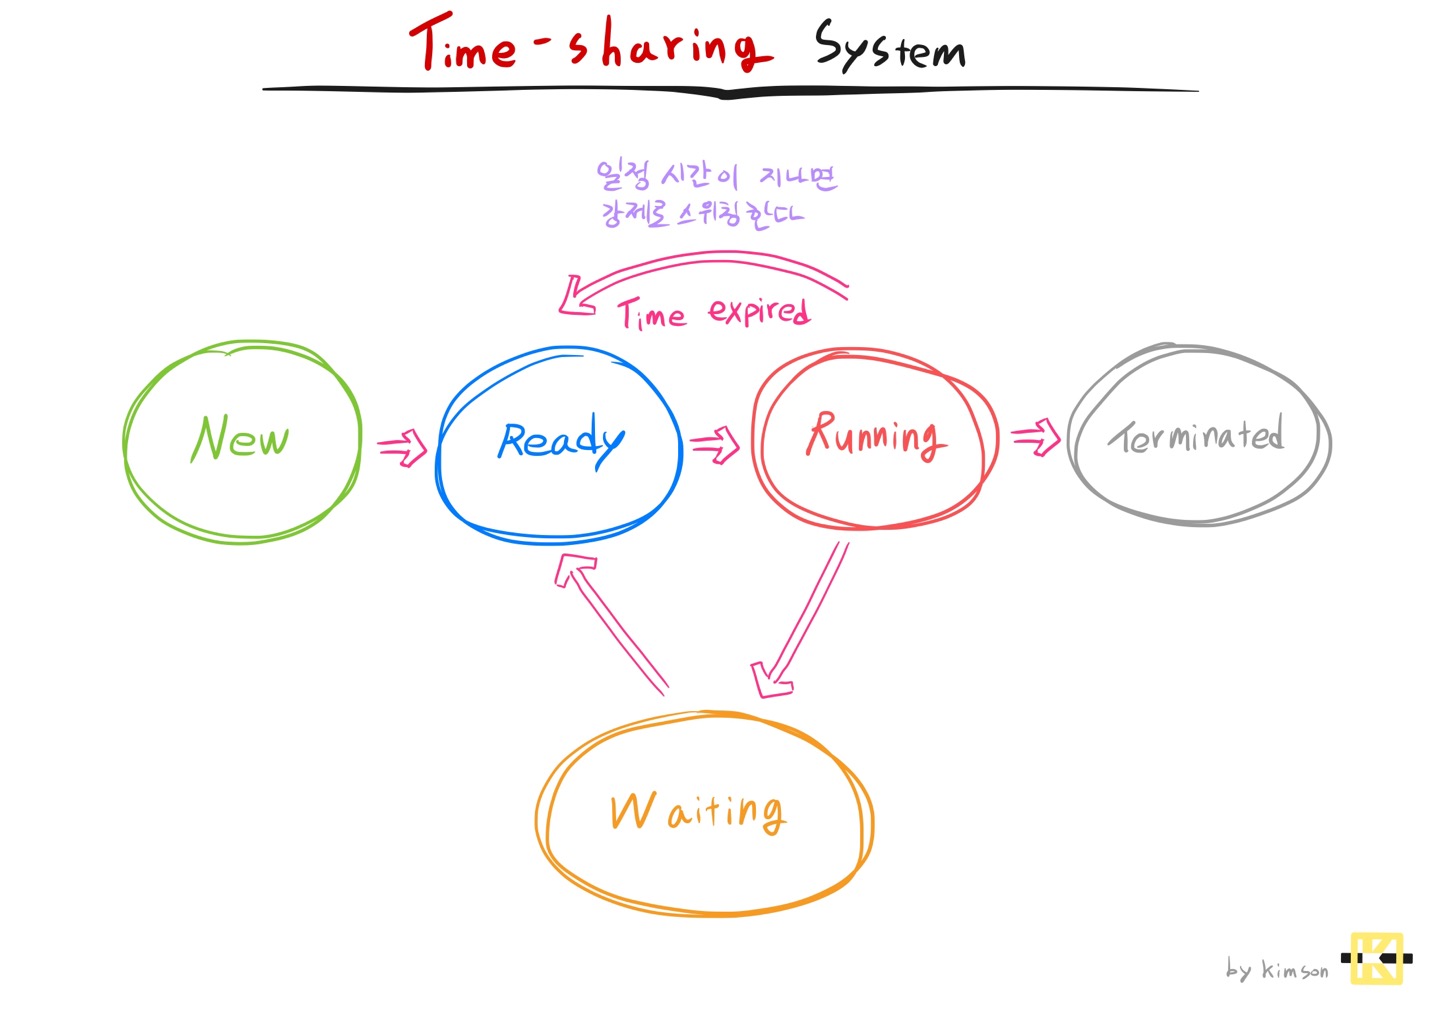 Time-sharing System
일정 시간이 지나면
강제로 스위칭한다
Time expired
New
Ready
Running
Terminated
Waiting
by kimson
K